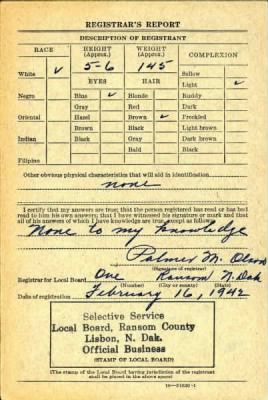 REGISTRAR'S REPORT
DESCRIPTION OF REGISTRANT
RACE HEIGHT (Approx.) WEIGHT (Approx.) COMPLEXION
White ✓ 5-6 145 Sallow
EYES HAIR Light ✓
Negro Blue ✓ Blonde Ruddy
Gray Red Dark
Oriental Hazel Brown ✓ Freckled
Brown Black Light brown
Indian Black Gray Dark brown
Bald Black
Filipino
Other obvious physical characteristics that will aid in identification
none
I certify that my answers are true; that the person registered has read or has had
read to him his own answers; that I have witnessed his signature or mark and that
all of his answers of which I have knowledge are true, except as follows:
None to my knowledge
Palmer M. Olson
(Signature of registrar)
Registrar for Local Board One Ransom N. Dak
(Number) (City or county) (State)
Date of registration February 16, 1942
Selective Service
Local Board, Ransom County
Lisbon, N. Dak.
Official Business
(STAMP OF LOCAL BOARD)
(The stamp of the Local Board having jurisdiction of the registrant
shall be placed in the above space)